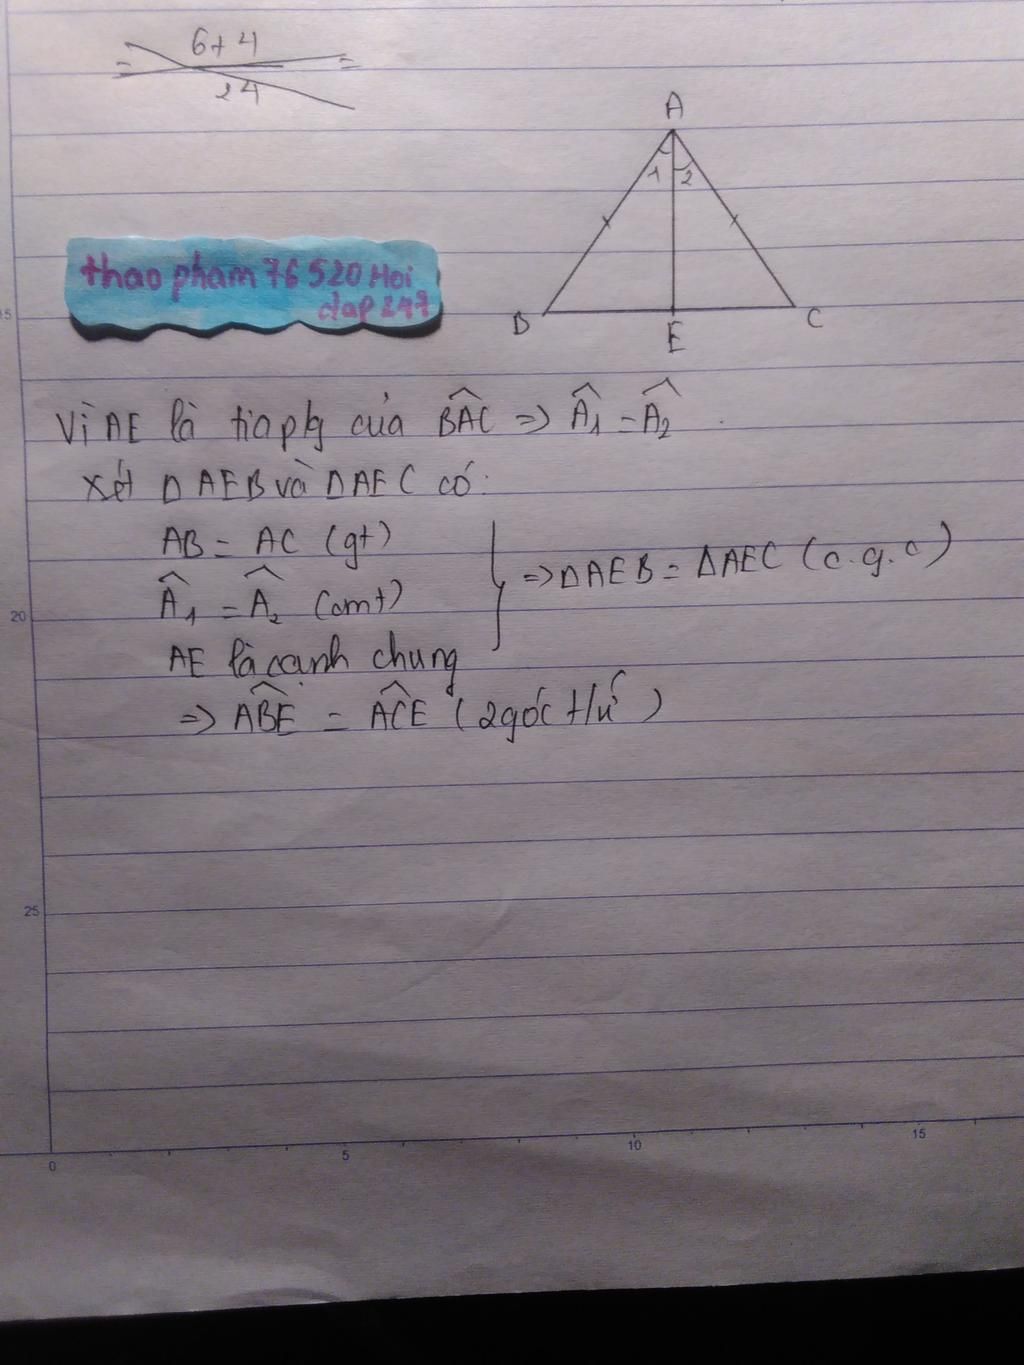 6+4
= =
24
A
1 2
B C
E
thao pham 76 520 Hoi
dap 247
Vì AE là tia p/g của BÂC => Â1 = Â2
Xét Δ AEB và ΔAEC có:
AB = AC (gt)
Â1 = Â2 (cmt)
AE là cạnh chung
=> ΔAEB = ΔAEC (c.g.c)
=> AB̂E = AĈE (2 góc t/ứ)
15
20
25
0 5 10 15